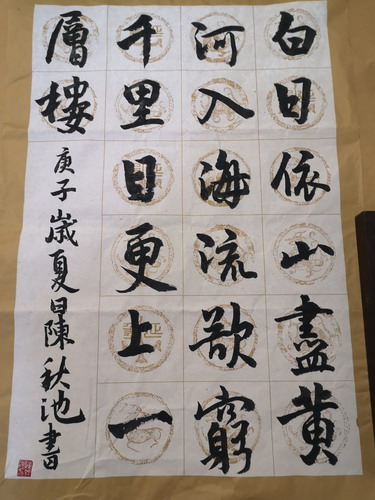 白日依山盡黃
河入海流欲窮
千里目更上一
層樓
庚子歲夏日陳秋池書